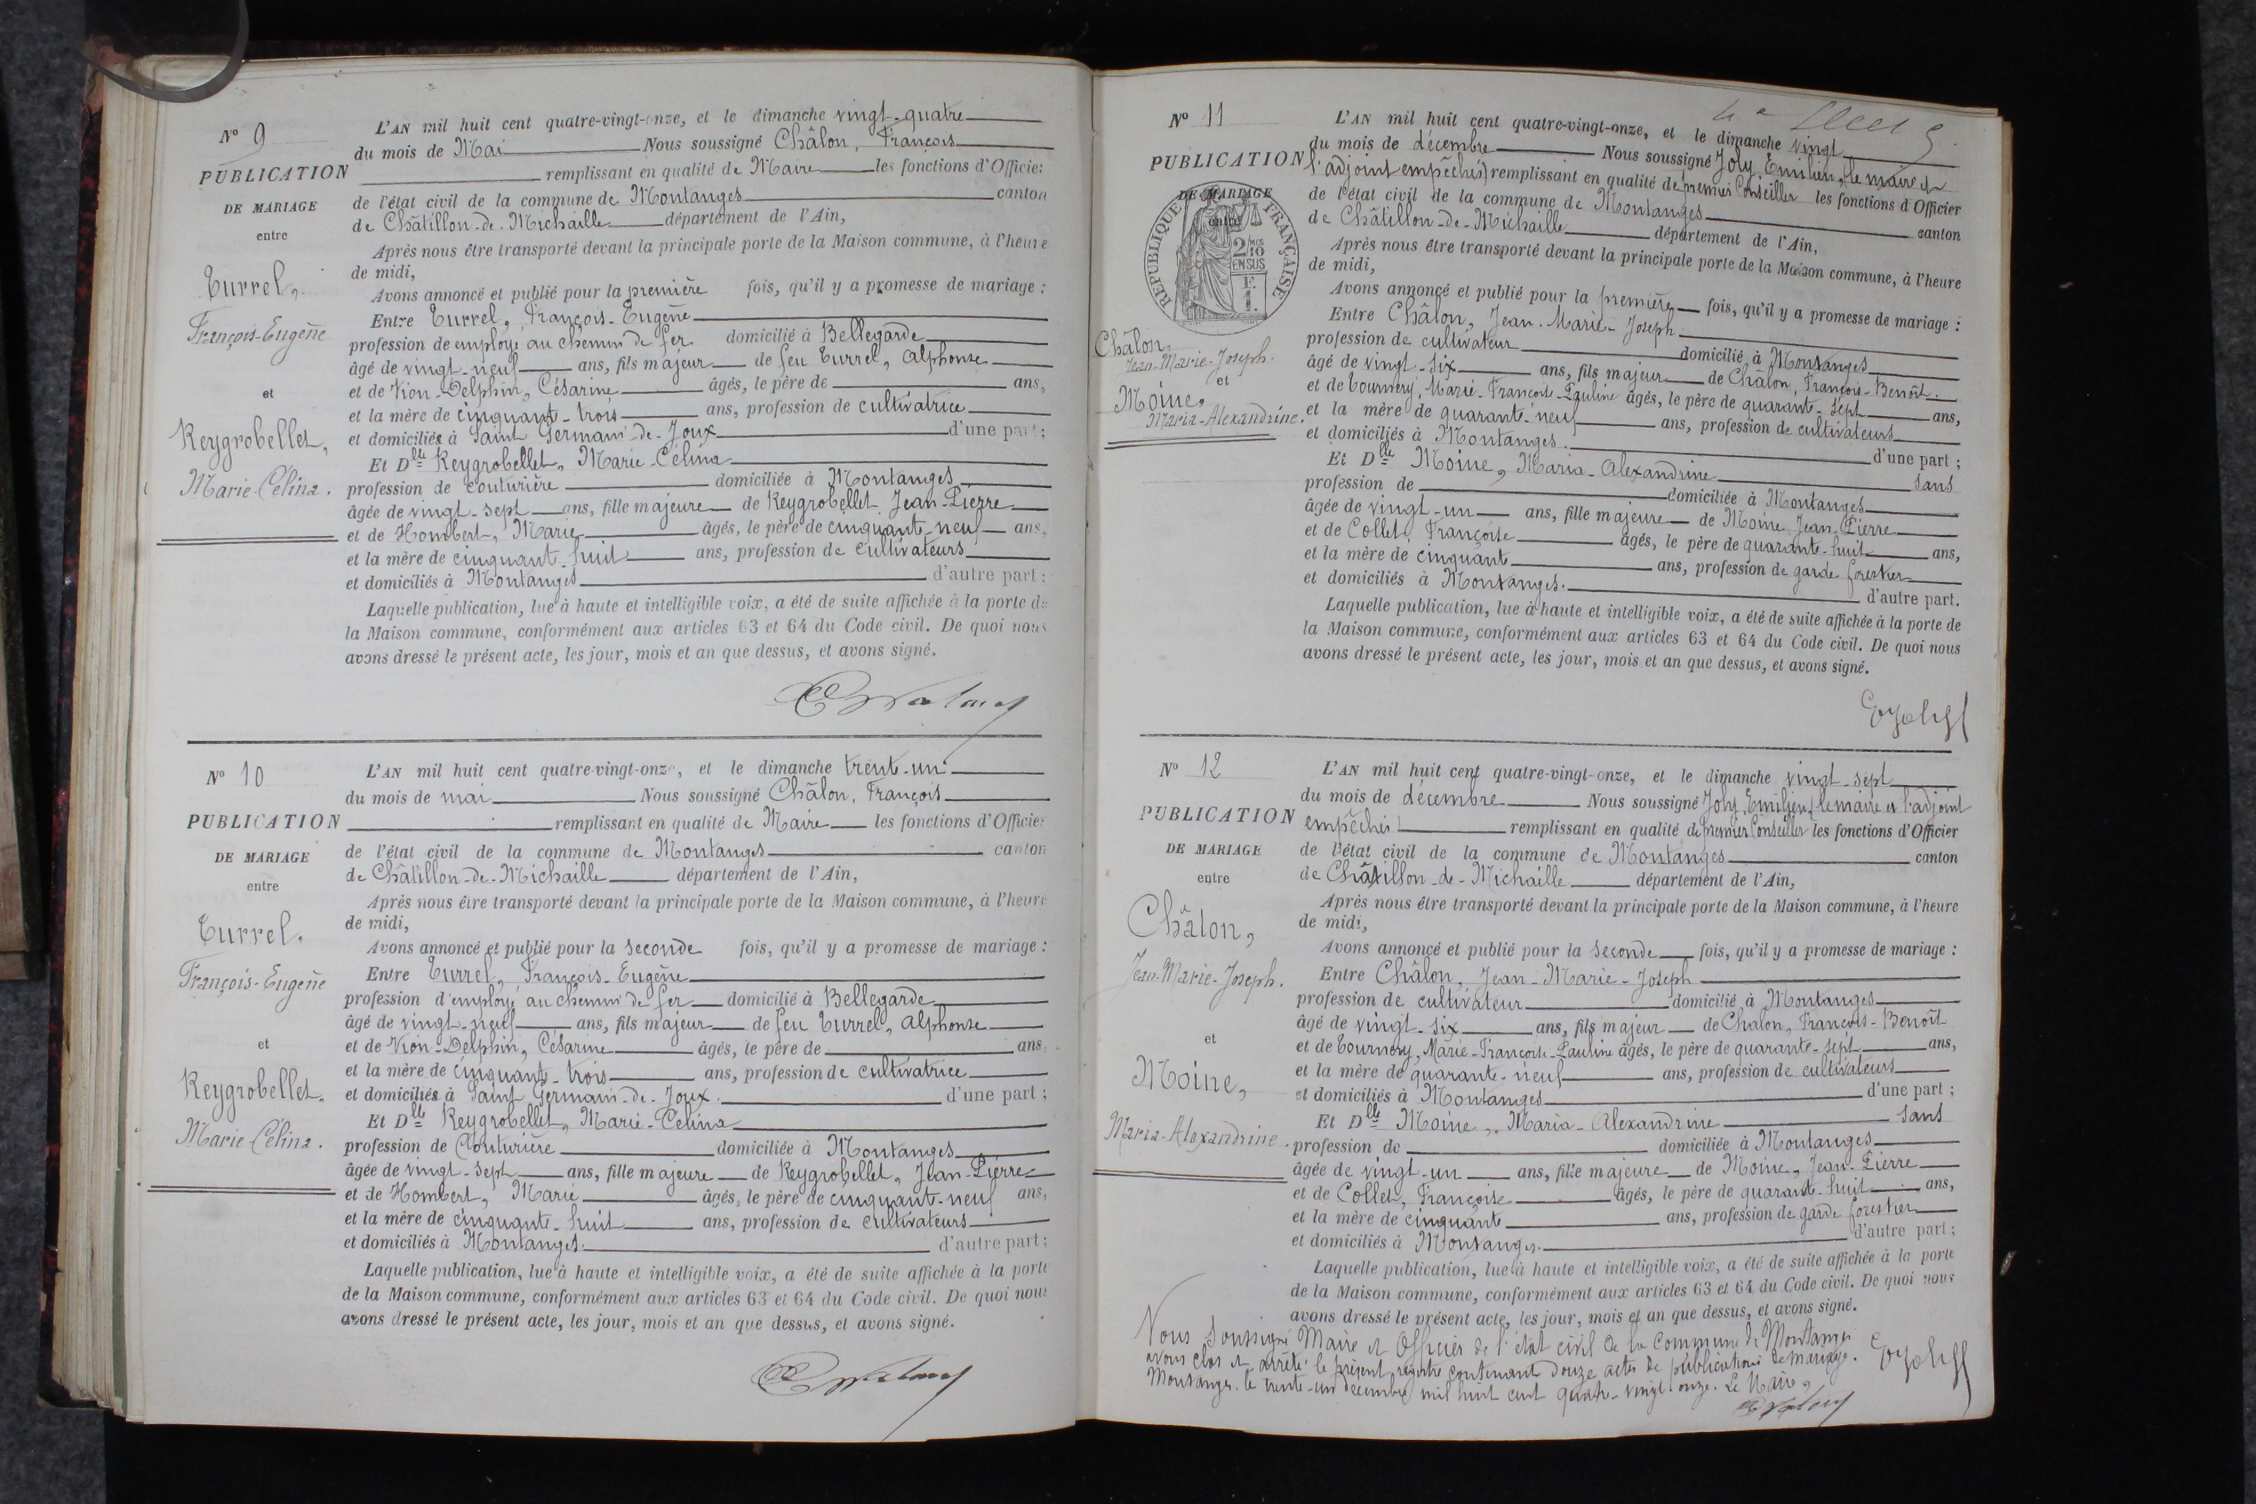 Nº 9
PUBLICATION
DE MARIAGE
entre
Turrel,
François-Eugène
et
Reygrobellet,
Marie-Célina.
L'AN mil huit cent quatre-vingt-onze, et le dimanche vingt-quatre
du mois de Mai Nous soussigné Châlon, François
remplissant en qualité de Maire les fonctions d'Officier
de l'état civil de la commune de Montanges canton
de Châtillon-de-Michaille département de l'Ain,
Après nous être transporté devant la principale porte de la Maison commune, à l'heure
de midi,
Avons annoncé et publié pour la première fois, qu'il y a promesse de mariage :
Entre Turrel, François-Eugène
profession de employé au chemin de fer domicilié à Bellegarde
âgé de vingt-neuf ans, fils majeur de feu Turrel, Alphonse
et de Vion-Delphin, Césarine âgés, le père de ans,
et la mère de cinquante-trois ans, profession de cultivatrice
et domiciliés à Saint Germain-de-Joux d'une part ;
Et Dlle Reygrobellet, Marie-Célina
profession de couturière domiciliée à Montanges
âgée de vingt-sept ans, fille majeure de Reygrobellet Jean-Pierre
et de Hombert, Marie âgés, le père de cinquante-neuf ans,
et la mère de cinquante-huit ans, profession de cultivateurs
et domiciliés à Montanges d'autre part :
Laquelle publication, lue à haute et intelligible voix, a été de suite affichée à la porte de
la Maison commune, conformément aux articles 63 et 64 du Code civil. De quoi nous
avons dressé le présent acte, les jour, mois et an que dessus, et avons signé.
Nº 10
PUBLICATION
DE MARIAGE
entre
Turrel.
François-Eugène
et
Reygrobellet.
Marie Célina.
L'AN mil huit cent quatre-vingt-onze, et le dimanche trente-un
du mois de mai Nous soussigné Châlon, François
remplissant en qualité de Maire les fonctions d'Officier
de l'état civil de la commune de Montanges canton
de Châtillon-de-Michaille département de l'Ain,
Après nous être transporté devant la principale porte de la Maison commune, à l'heure
de midi,
Avons annoncé et publié pour la seconde fois, qu'il y a promesse de mariage :
Entre Turrel, François-Eugène
profession d'employé au chemin de fer domicilié à Bellegarde
âgé de vingt-neuf ans, fils majeur de feu Turrel, Alphonse
et de Vion-Delphin, Césarine âgés, le père de ans
et la mère de cinquante-trois ans, profession de cultivatrice
et domiciliés à Saint Germain-de-Joux. d'une part ;
Et Dlle Reygrobellet, Marie-Célina
profession de Couturière domiciliée à Montanges
âgée de vingt-sept ans, fille majeure de Reygrobellet, Jean-Pierre
et de Hombert, Marie âgés, le père de cinquante-neuf ans,
et la mère de cinquante-huit ans, profession de cultivateurs
et domiciliés à Montanges. d'autre part ;
Laquelle publication, lue à haute et intelligible voix, a été de suite affichée à la porte
de la Maison commune, conformément aux articles 63 et 64 du Code civil. De quoi nous
avons dressé le présent acte, les jour, mois et an que dessus, et avons signé.
Nº 11
PUBLICATION
DE MARIAGE
entre
RÉPUBLIQUE FRANÇAISE
2/10
EN SUS
F.
1.
Châlon,
Jean-Marie-Joseph.
et
Moine,
Maria-Alexandrine.
L'AN mil huit cent quatre-vingt-onze, et le dimanche vingt
du mois de décembre Nous soussigné Joly, Emilien, (le maire et
l'adjoint empêchés) remplissant en qualité de premier Conseiller les fonctions d'Officier
de l'état civil de la commune de Montanges canton
de Châtillon-de-Michaille département de l'Ain,
Après nous être transporté devant la principale porte de la Maison commune, à l'heure
de midi,
Avons annoncé et publié pour la première fois, qu'il y a promesse de mariage :
Entre Châlon, Jean-Marie-Joseph
profession de cultivateur domicilié à Montanges
âgé de vingt-six ans, fils majeur de Châlon, François-Benoît.
et de Tournery, Marie-Françoise-Pauline âgés, le père de quarante-sept ans,
et la mère de quarante-neuf ans, profession de cultivateurs
et domiciliés à Montanges. d'une part ;
Et Dlle Moine, Maria-Alexandrine sans
profession de domiciliée à Montanges
âgée de vingt-un ans, fille majeure de Moine Jean-Pierre
et de Collet, Françoise âgés, le père de quarante-huit ans,
et la mère de cinquante ans, profession de garde forestier
et domiciliés à Montanges. d'autre part.
Laquelle publication, lue à haute et intelligible voix, a été de suite affichée à la porte de
la Maison commune, conformément aux articles 63 et 64 du Code civil. De quoi nous
avons dressé le présent acte, les jour, mois et an que dessus, et avons signé.
Nº 12
PUBLICATION
DE MARIAGE
entre
Châlon,
Jean-Marie-Joseph.
et
Moine,
Maria-Alexandrine.
L'AN mil huit cent quatre-vingt-onze, et le dimanche vingt-sept
du mois de décembre Nous soussigné Joly, Emilien, (le maire et l'adjoint
empêchés) remplissant en qualité de premier Conseiller les fonctions d'Officier
de l'état civil de la commune de Montanges canton
de Châtillon-de-Michaille département de l'Ain,
Après nous être transporté devant la principale porte de la Maison commune, à l'heure
de midi,
Avons annoncé et publié pour la seconde fois, qu'il y a promesse de mariage :
Entre Châlon, Jean-Marie-Joseph
profession de cultivateur domicilié à Montanges
âgé de vingt-six ans, fils majeur de Chalon, François-Benoît
et de Tournery, Marie-Françoise-Pauline âgés, le père de quarante-sept ans,
et la mère de quarante-neuf ans, profession de cultivateurs
et domiciliés à Montanges d'une part ;
Et Dlle Moine, Maria-Alexandrine sans
profession de domiciliée à Montanges
âgée de vingt-un ans, fille majeure de Moine, Jean-Pierre
et de Collet, Françoise âgés, le père de quarante-huit ans,
et la mère de cinquante ans, profession de garde forestier
et domiciliés à Montanges. d'autre part ;
Laquelle publication, lue à haute et intelligible voix, a été de suite affichée à la porte
de la Maison commune, conformément aux articles 63 et 64 du Code civil. De quoi nous
avons dressé le présent acte, les jour, mois et an que dessus, et avons signé.
Nous Soussigné Maire et Officier de l'état civil de la Commune de Montanges
avons clos et arrêté le présent registre contenant douze actes de publications de mariage.
Montanges. le trente-un décembre mil huit cent quatre-vingt onze. Le Maire,